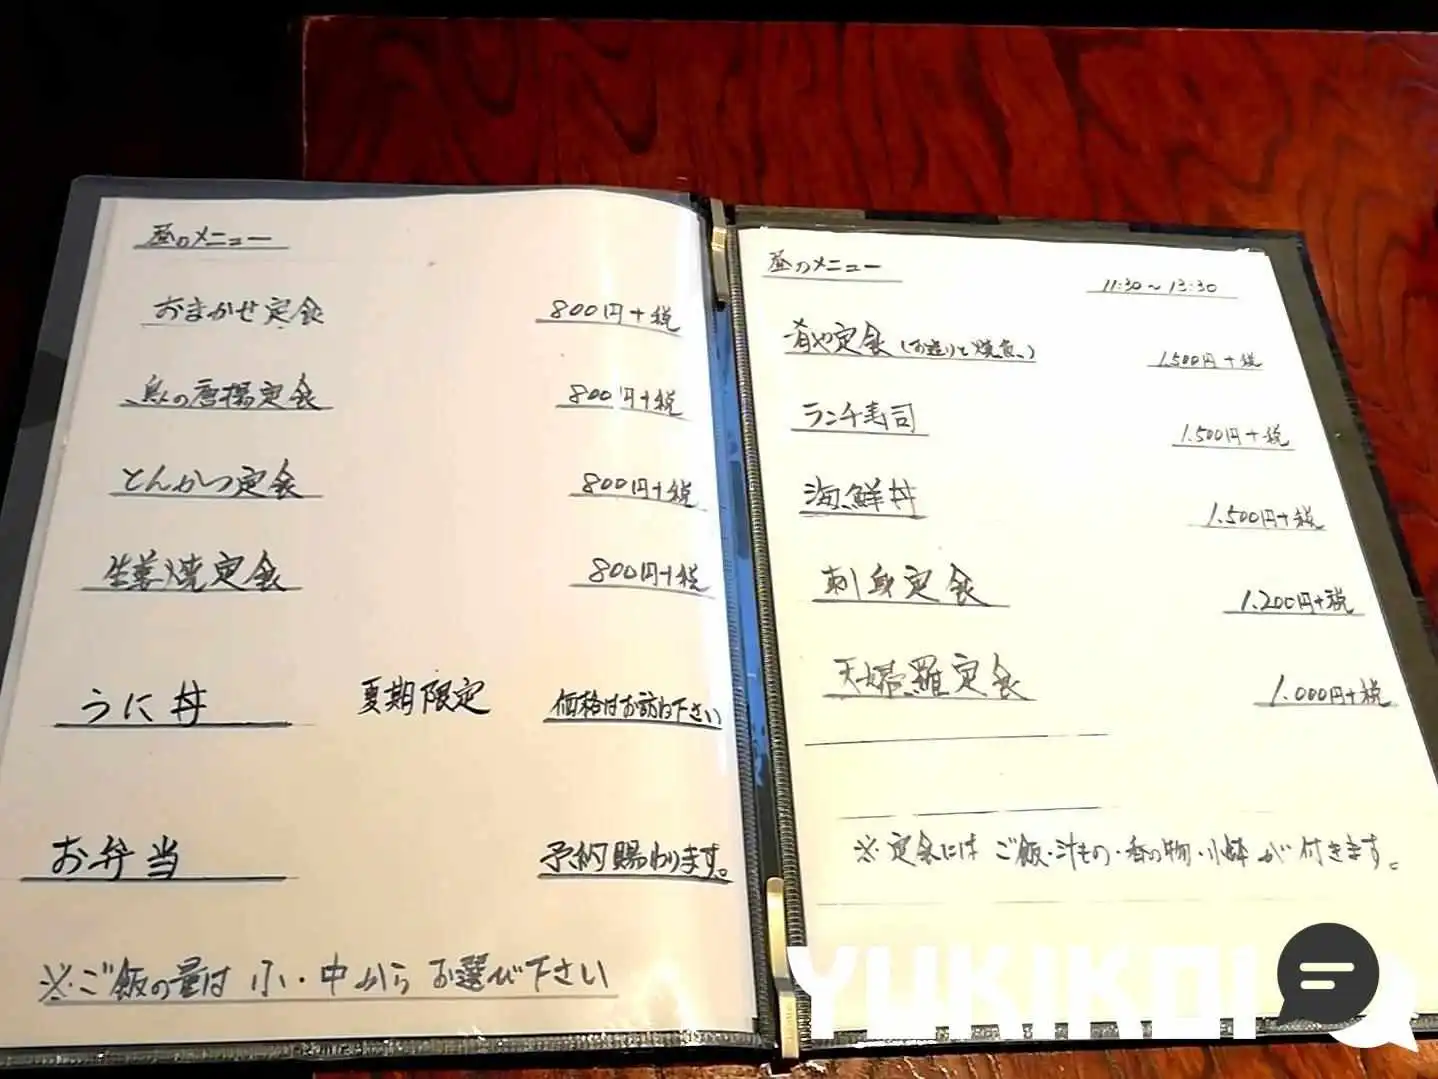 昼のメニュー
おまかせ定食 800円+税
鳥の唐揚定食 800円+税
とんかつ定食 800円+税
生姜焼定食 800円+税
うに丼 夏期限定 価格はお訪ね下さい
お弁当 予約賜わります。
※ご飯の量は 小・中から お選び下さい
昼のメニュー
11:30~13:30
肴や定食(お造りと焼魚) 1.500円+税
ランチ寿司 1.500円+税
海鮮丼 1.500円+税
刺身定食 1.200円+税
天婦羅定食 1.000円+税
※定食には ご飯・汁もの・香の物・小鉢が付きます。
YUKIKOI